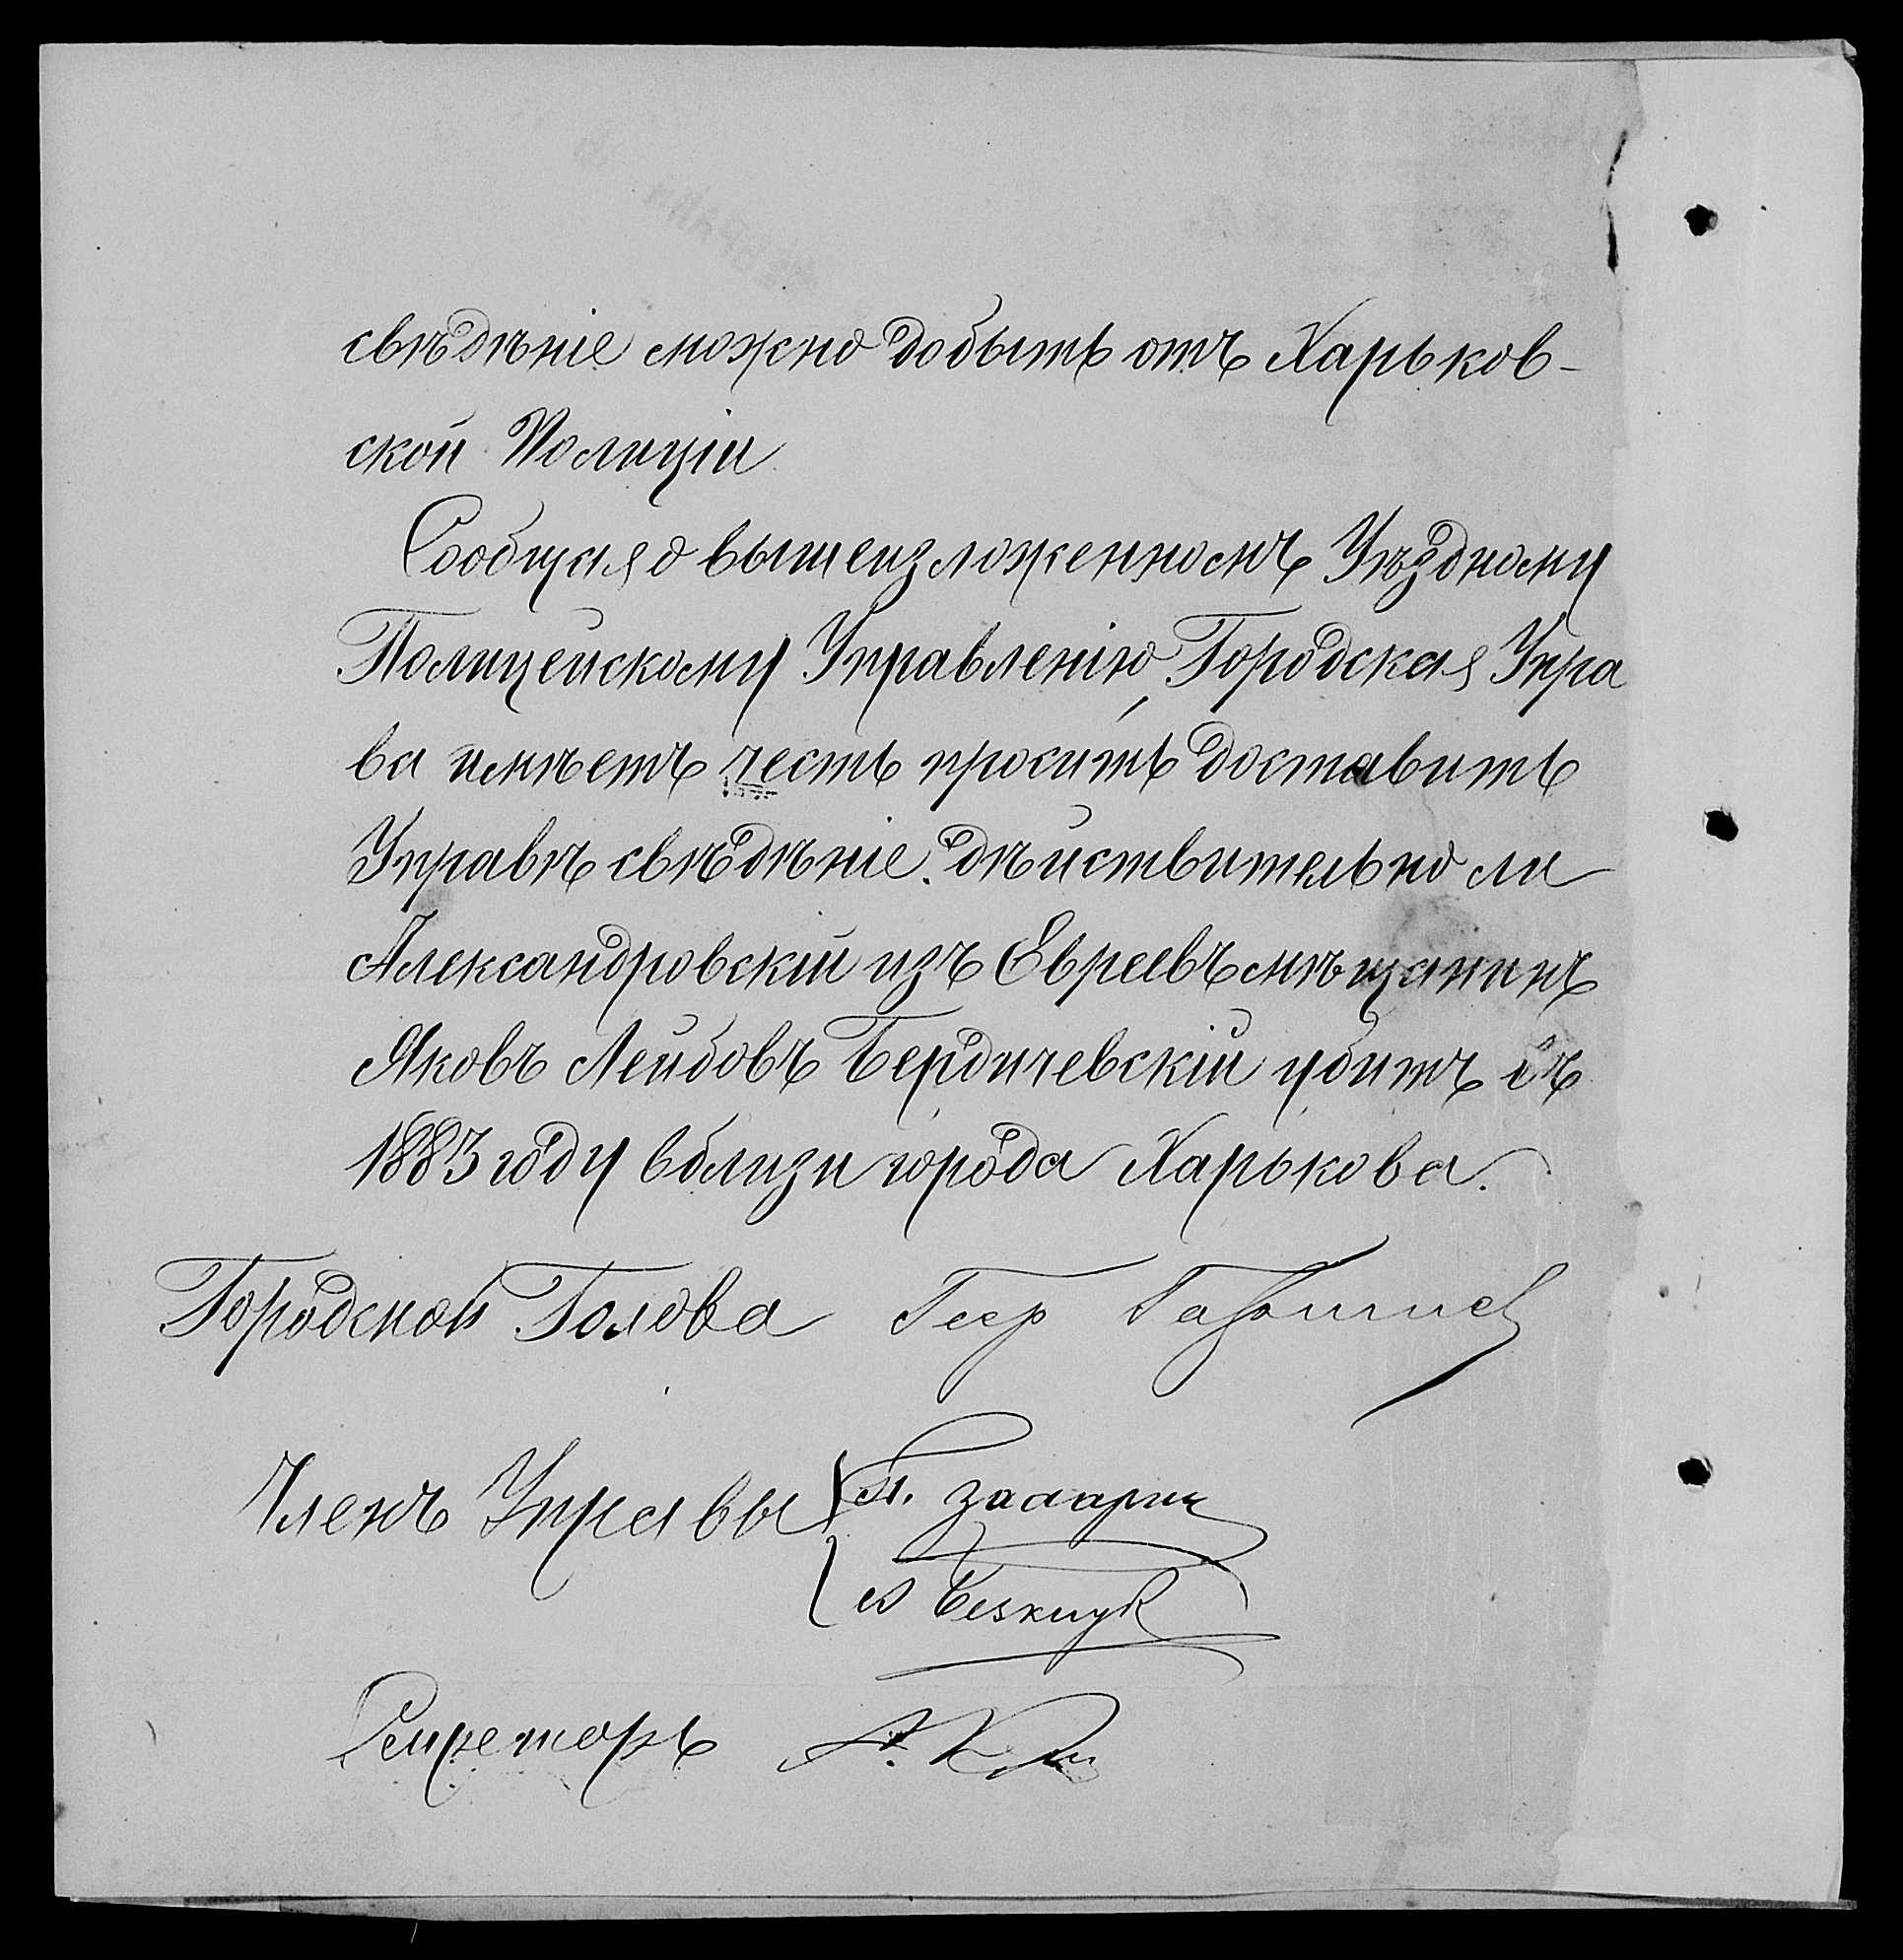 свѣдѣніе можно добыть отъ Харьков-
ской Полиціи
Сообщая о вышеизложенномъ Уѣздному
Полицейскому Управленію, Городская Упра
ва имѣетъ честь просить доставить
Управѣ свѣдѣніе. дѣйствительно ли
Александровскій изъ Евреевъ мѣщанинъ
Яковъ Лейбовъ Бердичевскій убитъ въ
1883 году вблизи города Харькова.
Городской Голова
Членъ Управы
Секретарь